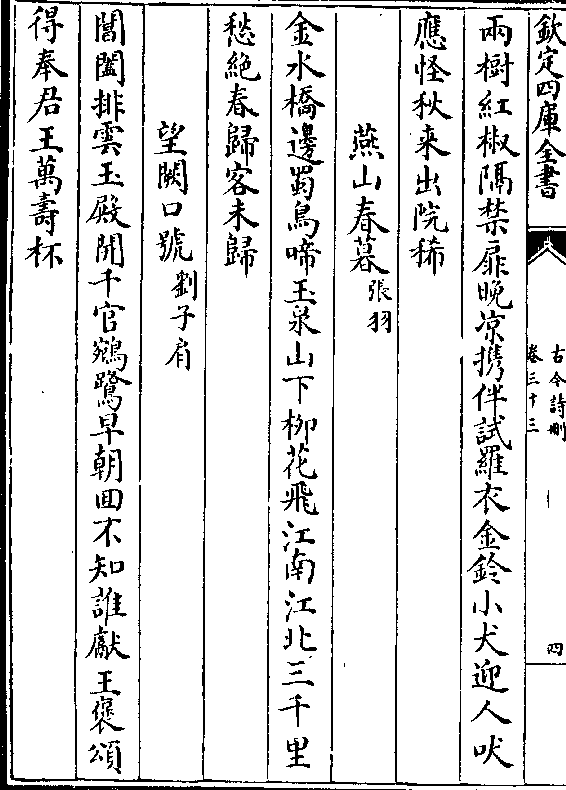 欽定四庫全書
古今詩刪
卷三十三
四
兩樹紅椒隔禁扉晚凉携伴試羅衣金鈴小犬迎人吠
應怪秋来出院稀
燕山春暮張羽
金水橋邊蜀鳥啼玉泉山下柳花飛江南江北三千里
愁絶春歸客未歸
望闕口號劉子肩
閶闔排雲玉殿開千官鵷鷺早朝囬不知誰獻王褒頌
得奉君王萬壽杯